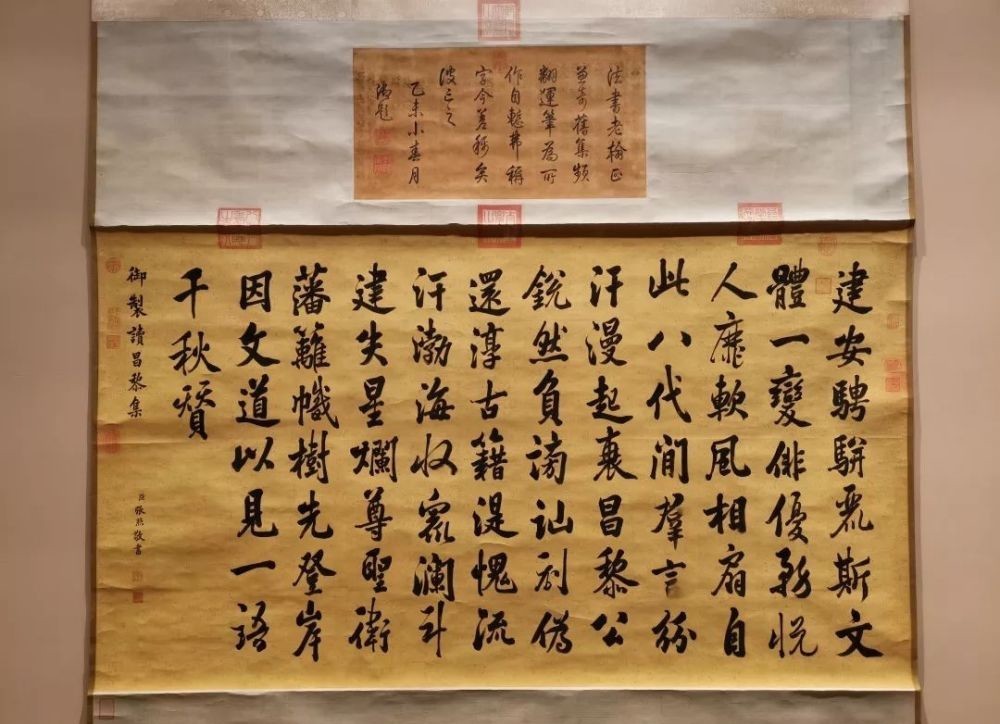 法書老正
舊集頻
翻運筆為所
作自慙弗稱
字今若稱矣
彼已之
乙未小春月
御題
建安騁駢麗斯文
體一變俳優務悅
人靡軟風相扇自
此八代間羣言紛
汗漫起衰昌黎公
銳然負謗訕刬偽
還淳古籍湜愧流
汗渤海收衆瀾斗
建失星爛尊聖衛
藩籬幟樹先登岸
因文道以見一語
千秋贊
御製讀昌黎集
臣張照敬書